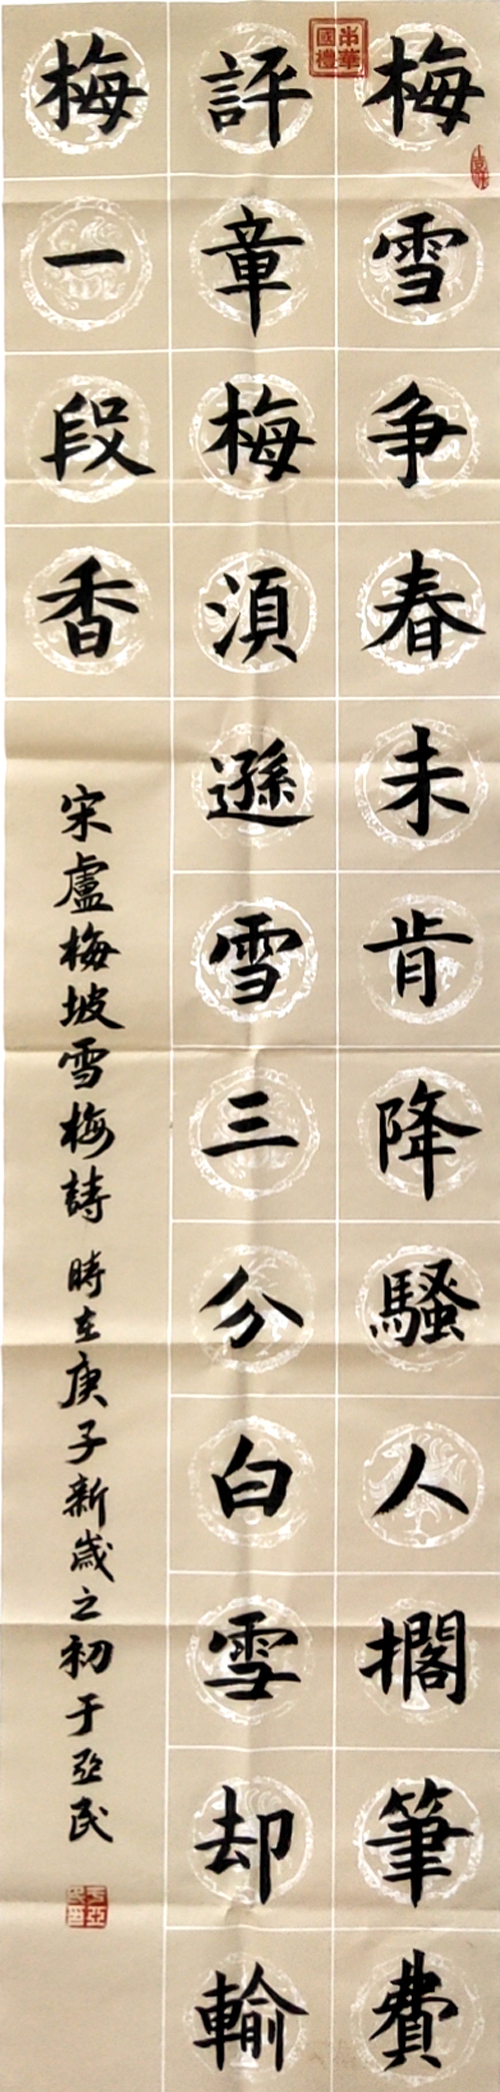 梅雪争春未肯降騷人擱筆費
評章梅須遜雪三分白雪却輸
梅一段香
宋盧梅坡雪梅詩 時在庚子新歲之初于亞民